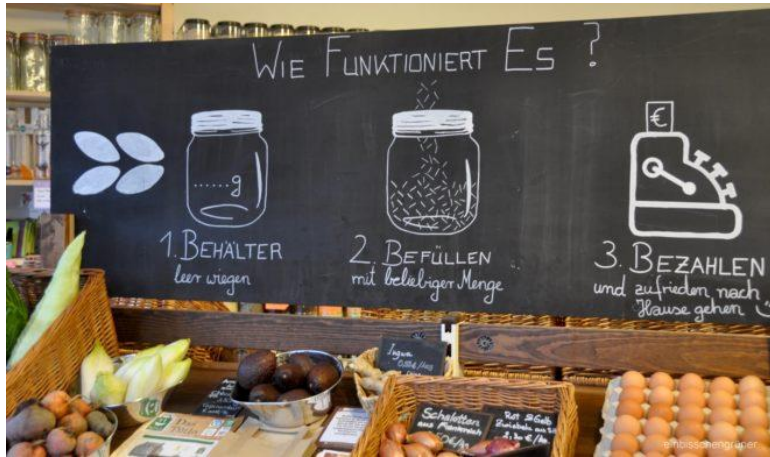 WIE FUNKTIONIERT ES ?
€
......g
1. BEHÄLTER
leer wiegen
2. BEFÜLLEN
mit beliebiger Menge
3. BEZAHLEN
und zufrieden nach
Hause gehen
Ingwer
Schalotten
Rot & Gelb
Zwiebeln
einbisschengrüner